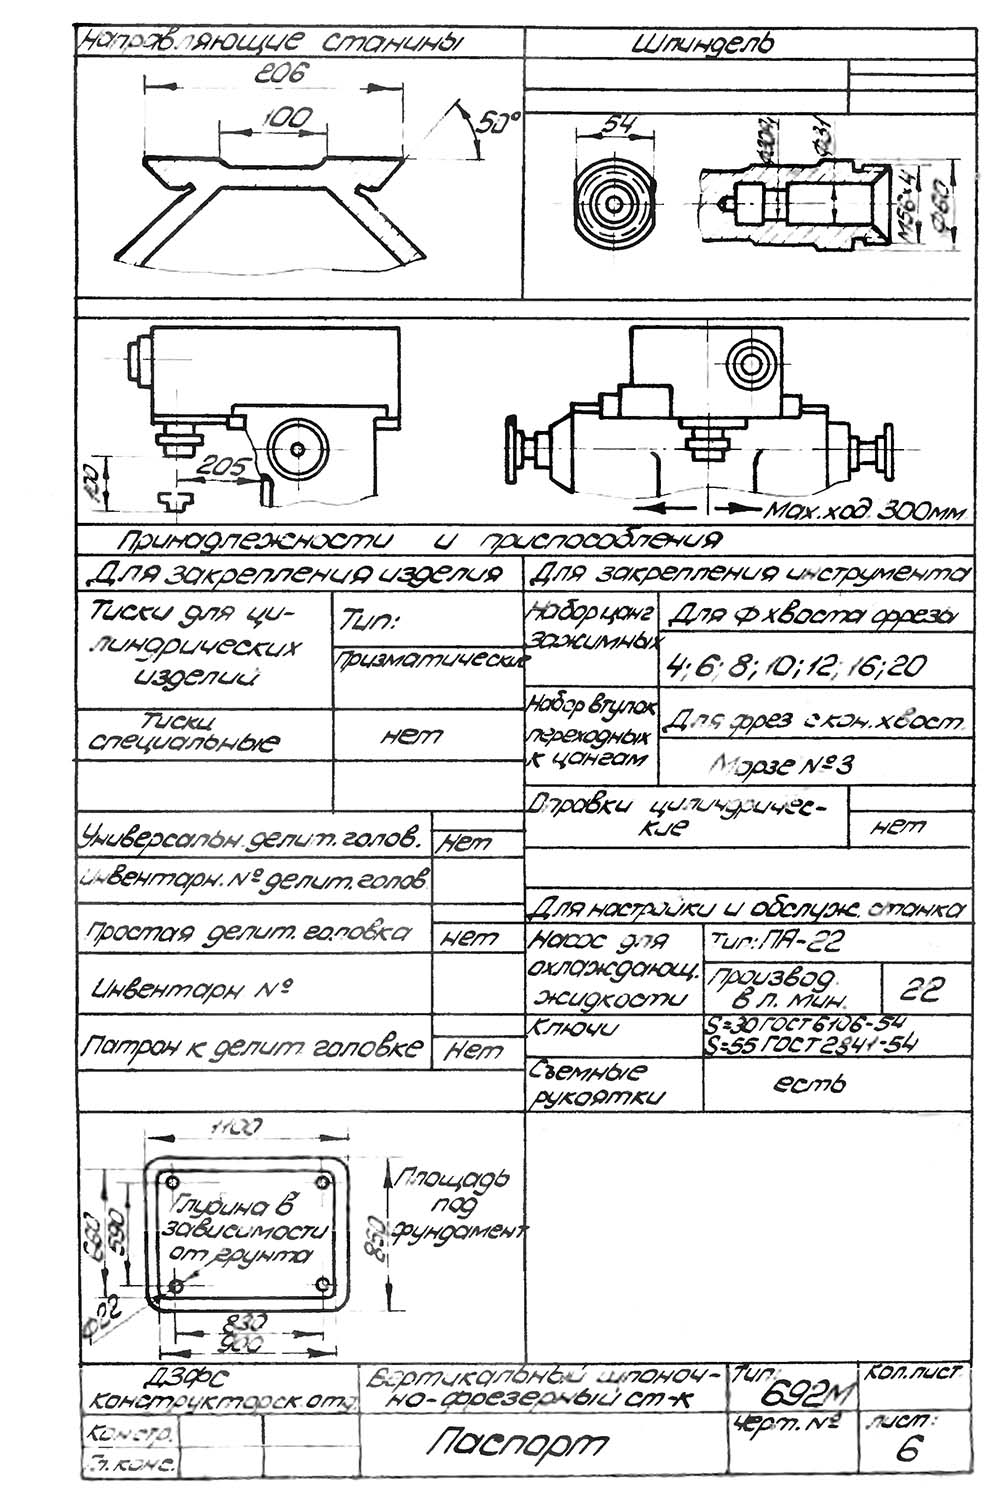 Направляющие станины
Шпиндель
206
100
50°
54
Ф31
М56×4
Ф60
100
205
Мах. ход. 300мм
Принадлежности и приспособления
Для закрепления изделия
Для закрепления инструмента
Тиски для ци-
линдрических
изделий
Тип:
Призматические
Тиски
специальные
нет
Универсальн. делит. голов.
Нет
Инвентарн. № делит. голов.
Простая делит. головка
нет
Инвентарн №
Патрон к делит. головке
Нет
Набор цанг
зажимных
Для Ф хвоста фрезы
4; 6; 8; 10; 12; 16; 20
Набор втулок
переходных
к цангам
Для фрез с кон. хвост.
Морзе №3
Оправки цилиндричес-
кие
нет
Для настройки и обслуж. станка
Насос для
охлаждающ.
жидкости
Тип: ПА-22
Производ.
в л. мин.
22
Ключи
S=30 ГОСТ 6106-54
S=55 ГОСТ 2841-54
Съемные
рукоятки
есть
1100
Глубина в
зависимости
от грунта
680
590
850
Ф22
830
900
Площадь
под
фундамент
ДЗФС
конструкторск. отд.
Вертикальный шпоноч-
но-фрезерный ст-к
Тип:
692М
Кол. лист.
Констр.
Гл. конс.
Паспорт
Черт. №
лист:
6